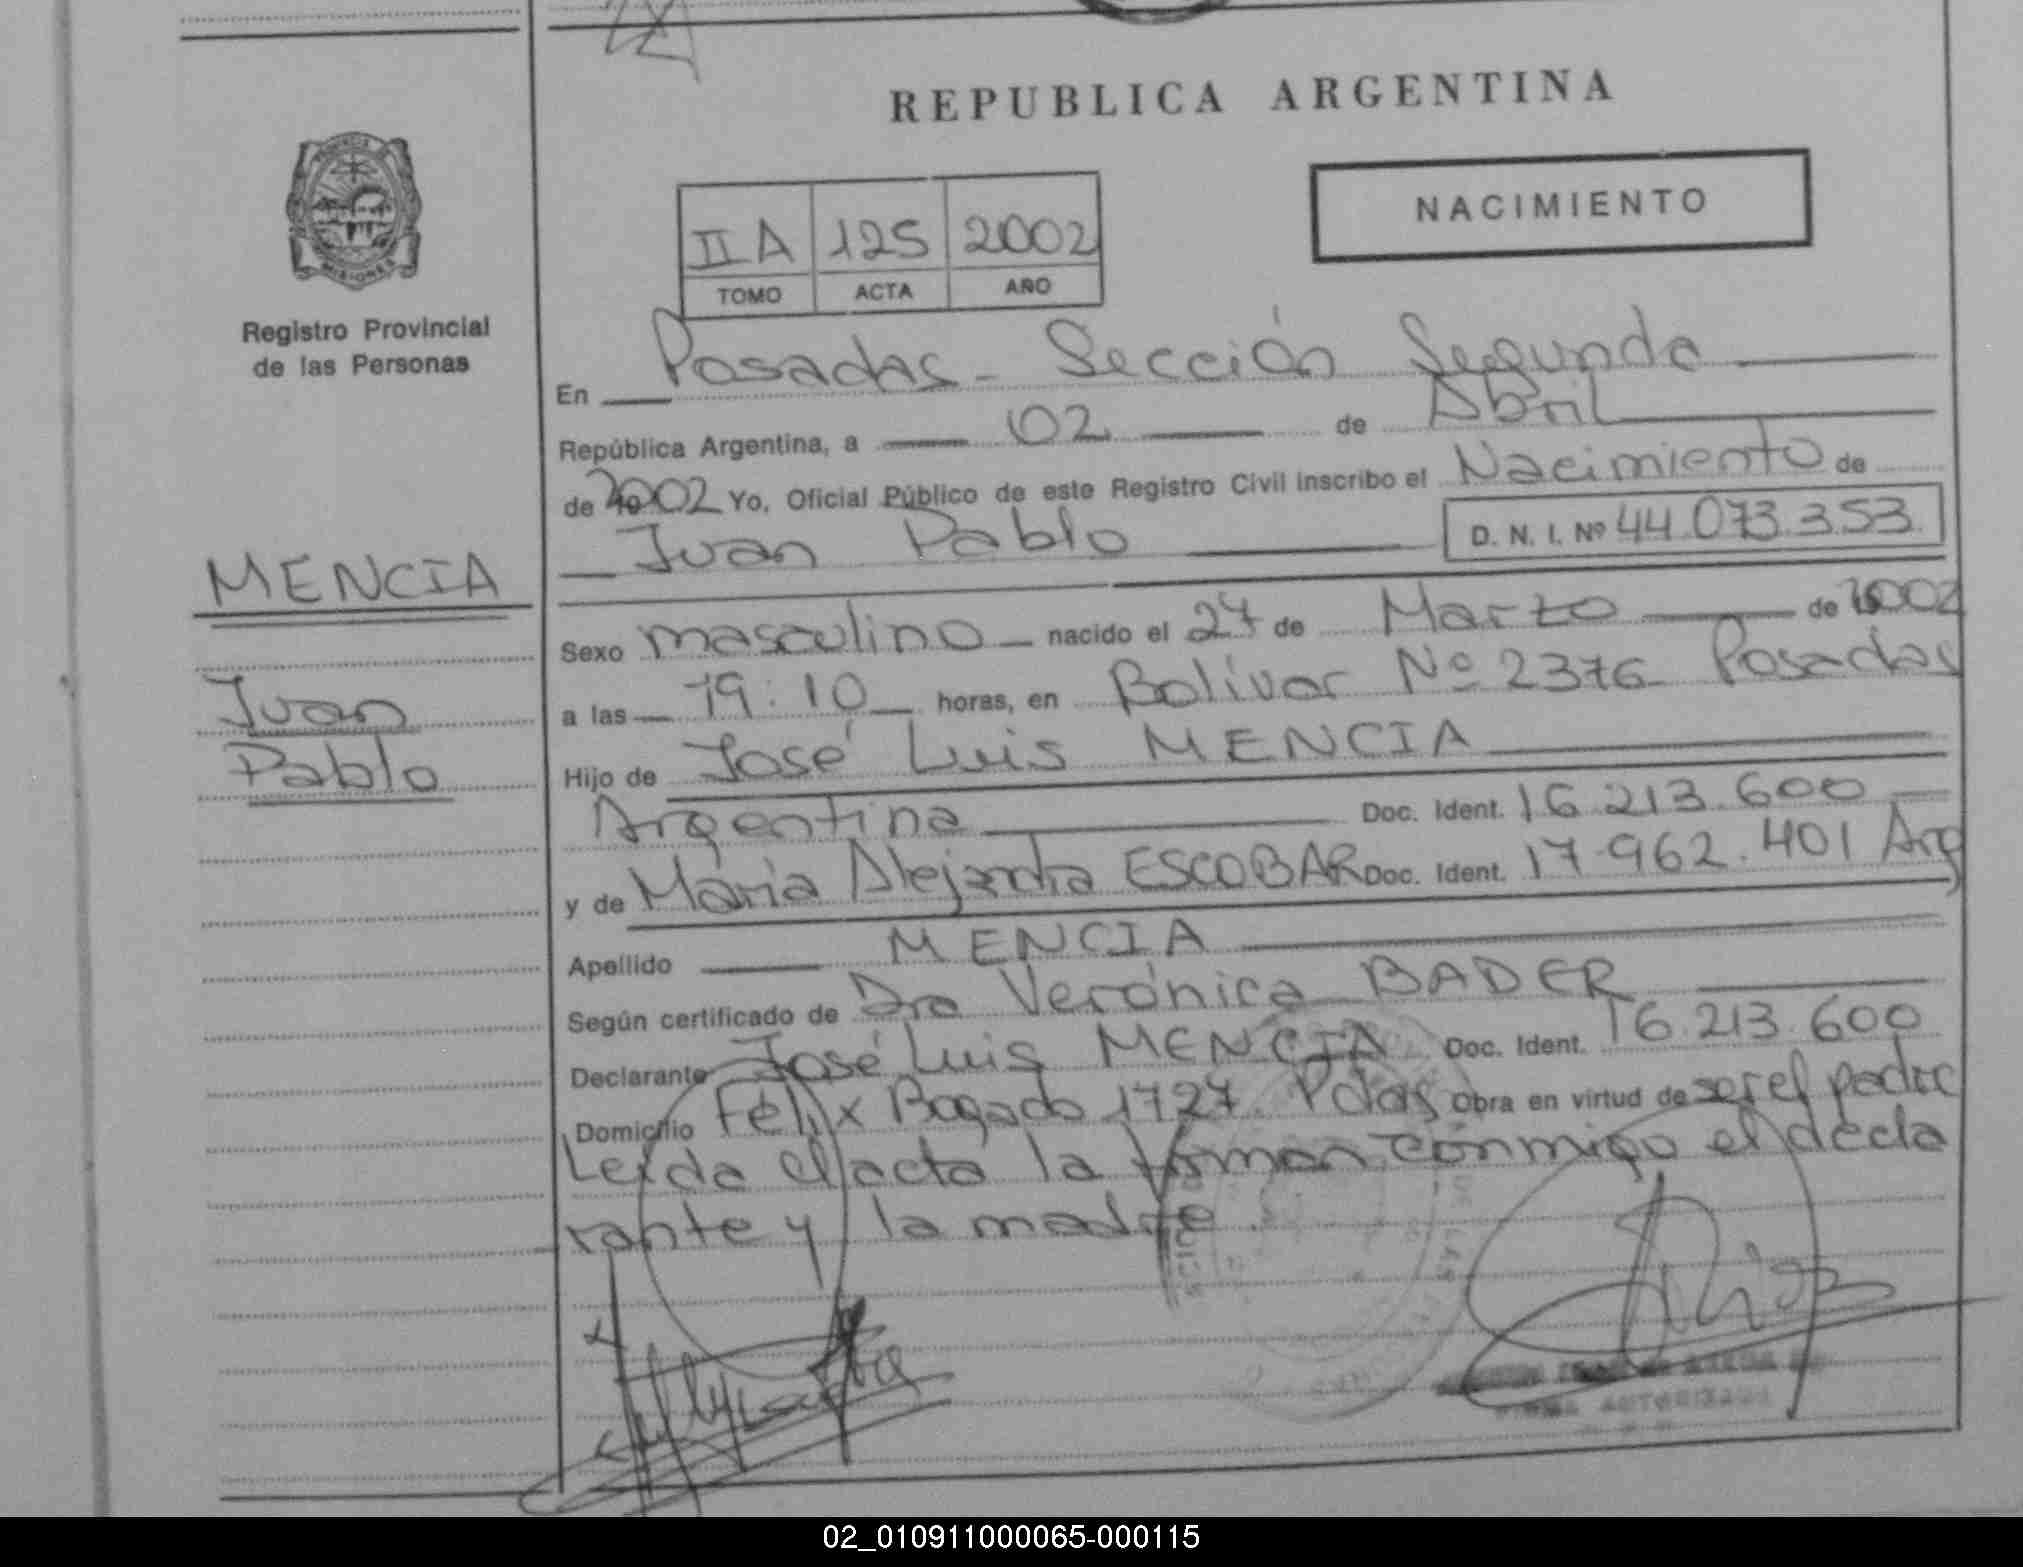 REPUBLICA ARGENTINA
NACIMIENTO
II A 125 2002
TOMO ACTA AÑO
PROVINCIA DE MISIONES
Registro Provincial
de las Personas
En Posadas - Sección Segunda
República Argentina, a 02 de Abril
de 2002 Yo, Oficial Público de este Registro Civil inscribo el Nacimiento de
Juan Pablo D. N. I. Nº 44.073.353.
MENCIA
Juan
Pablo
Sexo masculino nacido el 27 de Marzo de 2002
a las 19:10 horas, en Bolívar Nº 2376 Posadas
Hijo de José Luis MENCIA
Argentina Doc. Ident. 16.213.600
y de María Alejandra ESCOBAR Doc. Ident. 17.962.401 Arg
Apellido MENCIA
Según certificado de Dra Verónica BADER
Declarante José Luis MENCIA Doc. Ident. 16.213.600
Domicilio Félix Bogado 1727. Pdas Obra en virtud de ser el padre
Leída el acta la firman conmigo el decla
rante y la madre.
FIRMA AUTORIZADA
02_010911000065-000115